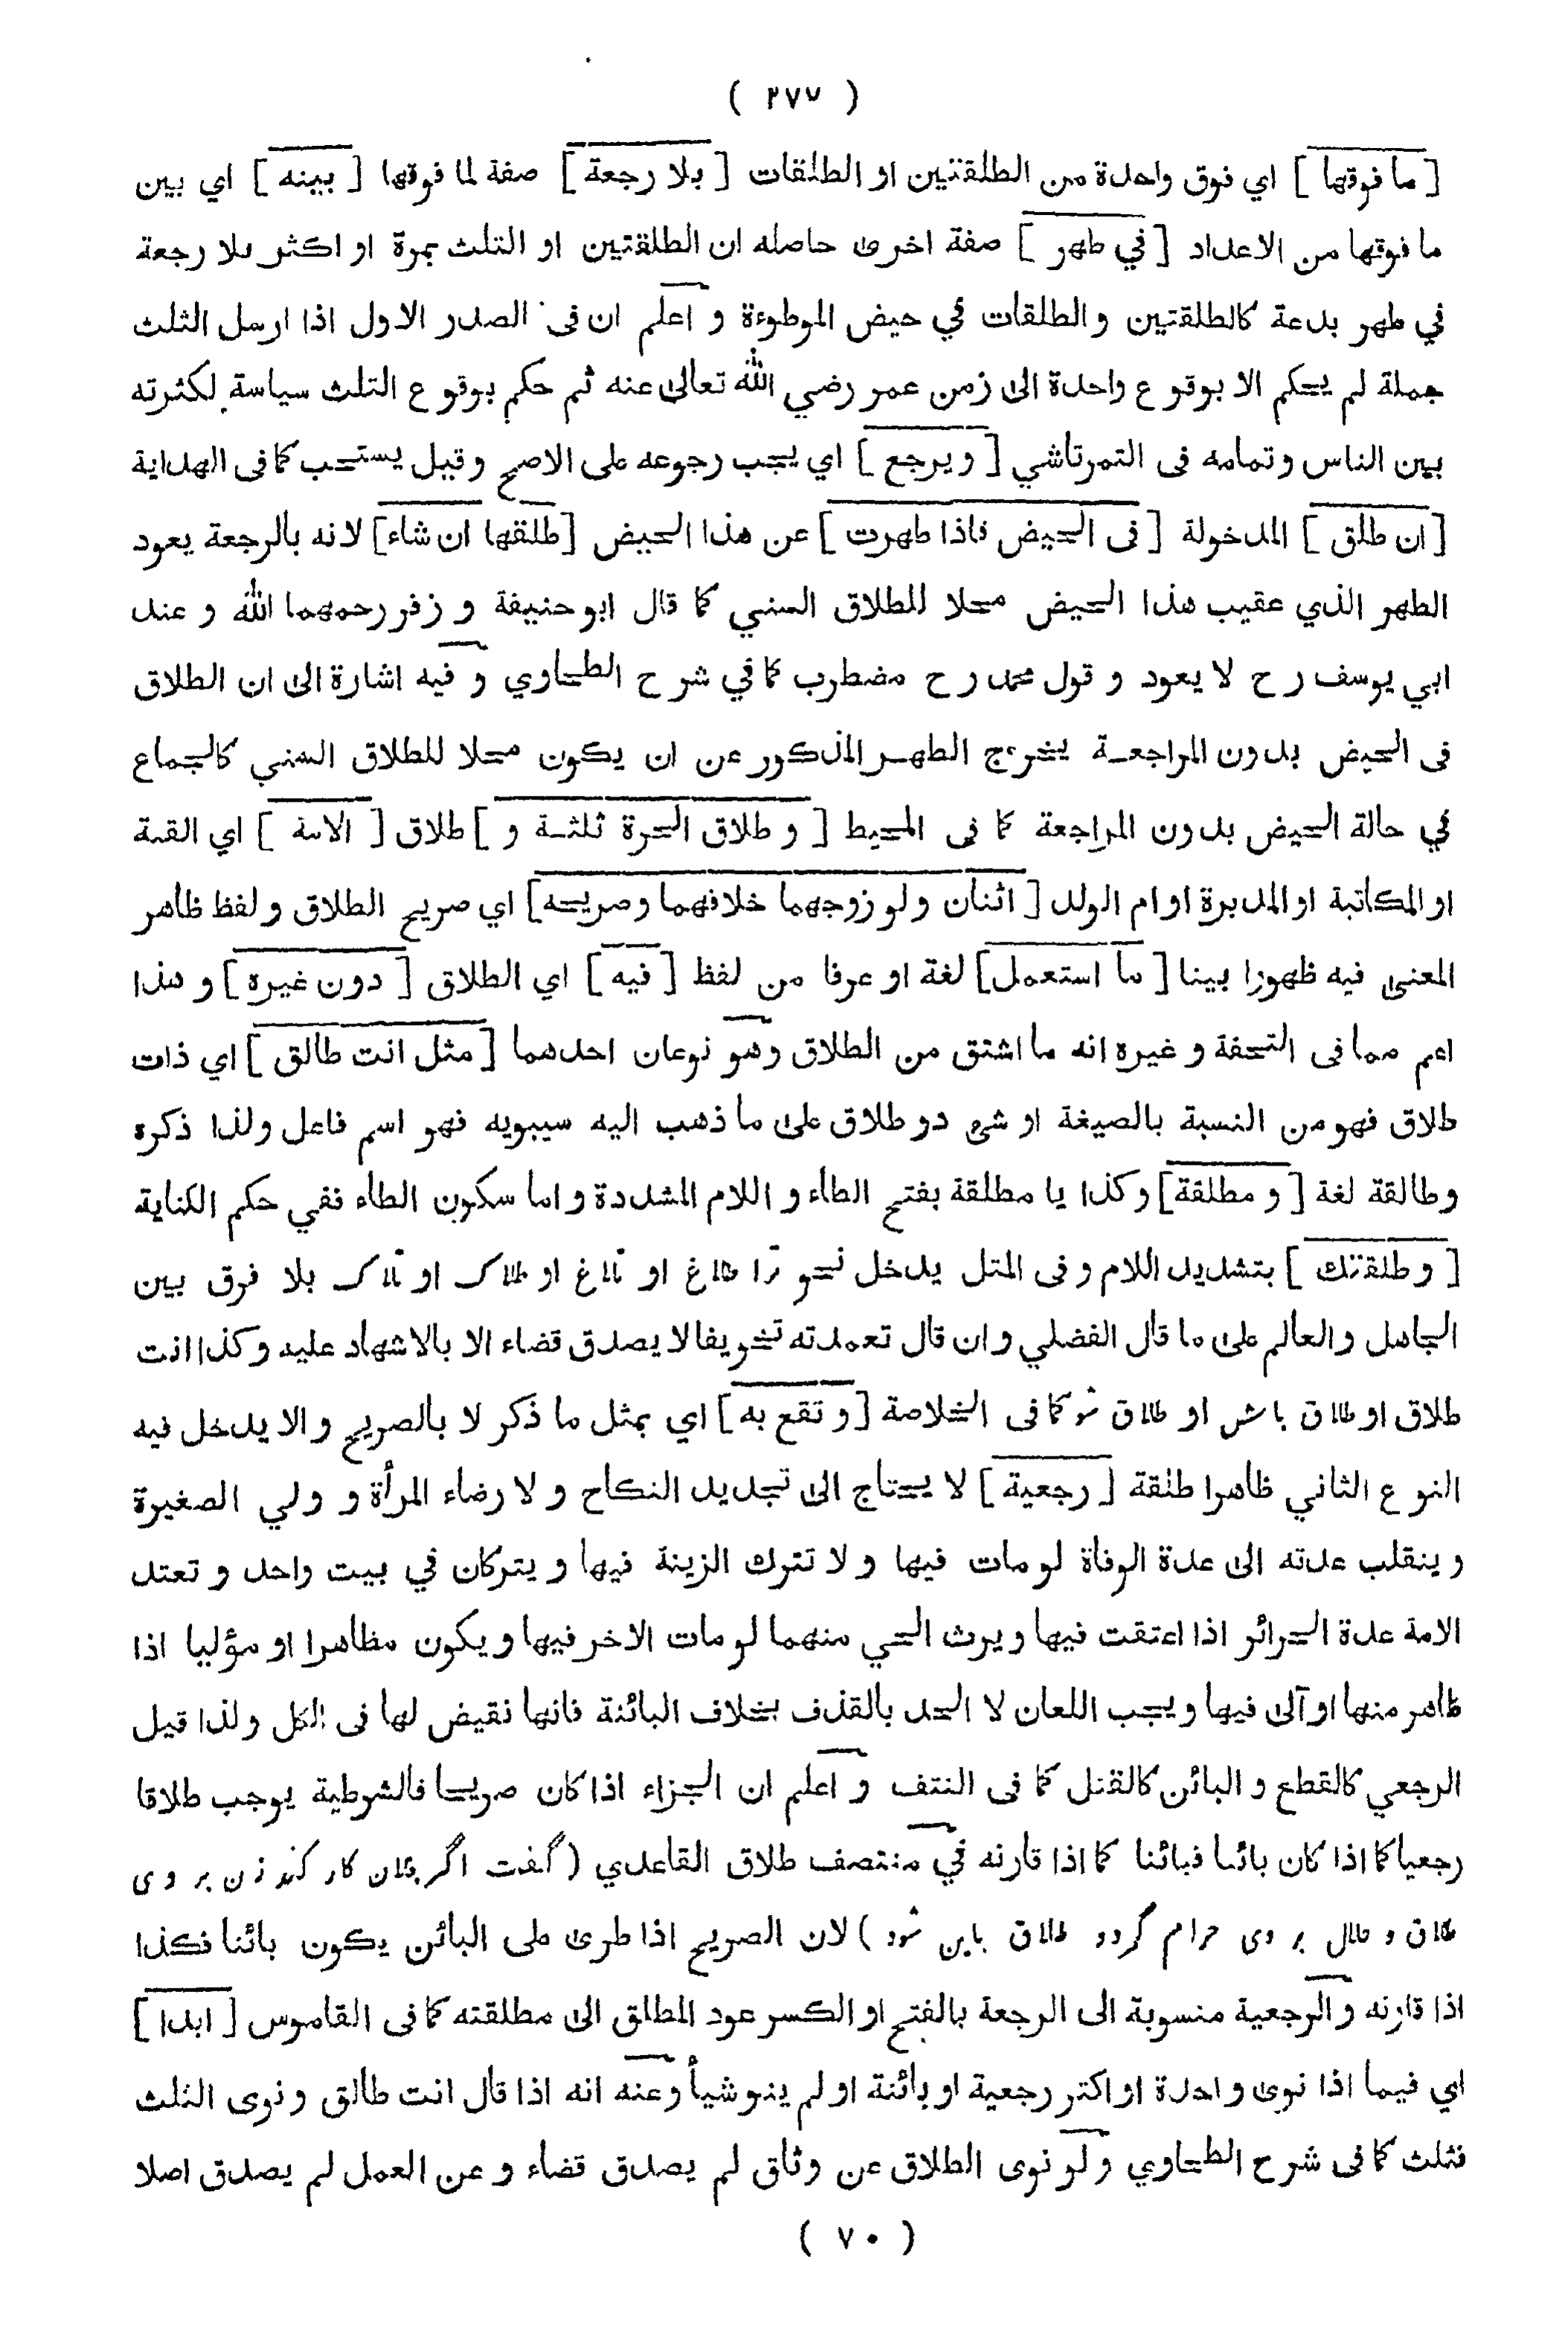 ( ٢٧٧ )
[ ما فوقها ] اي فوق واحدة من الطلقتين او الطلقات [ بلا رجعة ] صفة لما فوقها [ بينه ] اي بين
ما فوقها من الاعداد [ في طهر ] صفة اخرى حاصله ان الطلقتين او التلث بمرة او اكثر بلا رجعة
في طهر بدعة كالطلقتين والطلقات في حيض الموطوءة و اعلم ان فى الصدر الاول اذا ارسل الثلث
جملة لم يحكم الا بوقوع واحدة الى زمن عمر رضي الله تعالى عنه ثم حكم بوقوع التلث سياسة لكثرته
بين الناس وتمامه فى التمرتاشي [ ويرجع ] اي يجب رجوعه على الاصح وقيل يستحب كما فى الهداية
[ ان طلق ] المدخولة [ فى الحيض فاذا طهرت ] عن هذا الحيض [ طلقها ان شاء ] لانه بالرجعة يعود
الطهر الذي عقيب هذا الحيض محلا للطلاق السني كما قال ابو حنيفة و زفر رحمهما الله و عند
ابي يوسف رح لا يعود و قول محمد رح مضطرب كما في شرح الطحاوي و فيه اشارة الى ان الطلاق
فى الحيض بدون المراجعة يخرج الطهر المذكور عن ان يكون محلا للطلاق السني كالجماع
في حالة الحيض بدون المراجعة كما فى المحيط [ و طلاق الحرة ثلثة و ] طلاق [ الامة ] اي القنة
او المكاتبة او المدبرة او ام الولد [ اثنان ولو زوجهما خلافهما وصريحه ] اي صريح الطلاق ولفظ ظاهر
المعنى فيه ظهورا بينا [ ما استعمل ] لغة او عرفا من لفظ [ فيه ] اي الطلاق [ دون غيره ] و هذا
اعم مما فى التحفة و غيره انه ما اشتق من الطلاق وهو نوعان احدهما [ مثل انت طالق ] اي ذات
طلاق فهو من النسبة بالصيغة او شئ دو طلاق على ما ذهب اليه سيبويه فهو اسم فاعل ولذا ذكره
وطالقة لغة [ و مطلقة ] وكذا يا مطلقة بفتح الطاء و اللام المشددة و اما سكون الطاء ففي حكم الكناية
[ وطلقتك ] بتشديد اللام و فى المتل يدخل نحو ترا طلاغ او تلاغ او طلاك او تلاك بلا فرق بين
الجاهل والعالم على ما قال الفضلي وان قال تعمدته تخويفا لا يصدق قضاء الا بالاشهاد عليه وكذا انت
طلاق او طلاق باش او طلاق شو كما فى الخلاصة [ و تقع به ] اي بمثل ما ذكر لا بالصريح والا يدخل فيه
النوع الثاني ظاهرا طلقة [ رجعية ] لا يحتاج الى تجديد النكاح و لا رضاء المرأة و ولي الصغيرة
و ينقلب عدته الى عدة الوفاة لو مات فيها و لا تترك الزينة فيها و يتركان في بيت واحد و تعتد
الامة عدة الحرائر اذا اعتقت فيها و يرث الحي منهما لو مات الاخر فيها و يكون مظاهرا او مؤليا اذا
ظاهر منها او آلى فيها و يجب اللعان لا الحد بالقذف بخلاف البائنة فانها نقيض لها فى الكل ولذا قيل
الرجعي كالقطع و البائن كالقتل كما فى النتف و اعلم ان الجزاء اذا كان صريحا فالشرطية يوجب طلاقا
رجعيا كما اذا كان بائنا فبائنا كما اذا قارنه في منتصف طلاق القاعدي ( گفت اگر فلان كار كند زن بر وى
طلاق و حلال بر وى حرام گردد طلاق باين شود ) لان الصريح اذا طرى على البائن يكون بائنا فكذا
اذا قارنه والرجعية منسوبة الى الرجعة بالفتح او الكسر عود المطلق الى مطلقته كما فى القاموس [ ابدا ]
اي فيما اذا نوى واحدة او اكتر رجعية او بائنة او لم ينو شيأ وعنه انه اذا قال انت طالق و نوى الثلث
فثلث كما فى شرح الطحاوي و لو نوى الطلاق عن وثاق لم يصدق قضاء و عن العمل لم يصدق اصلا
( ٧٠ )